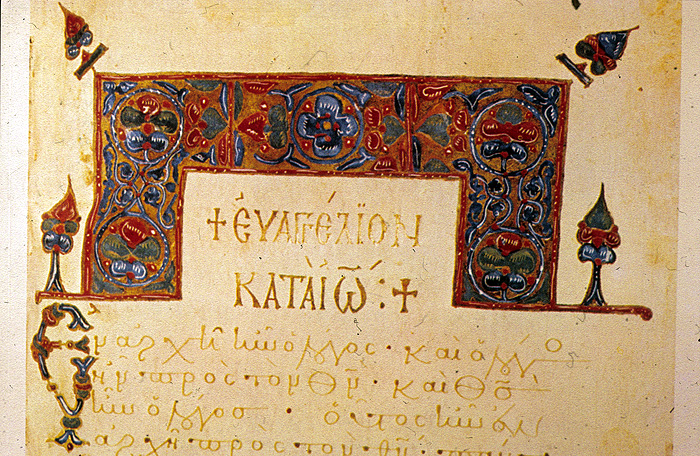 + ἘΥΑΓΓΈΛΪΟΝ
ΚΑΤΑ ἸΩ̅: +
Ἐν ἀρχῆ ἦν ὁ λόγος · καὶ ὁ λόγος
ἦν πρὸς τὸν θ̅ν̅ · καὶ θ̅ς̅
ἦν ὁ λόγος · οὗτος ἦν ἐν
ἀρχῆ πρὸς τὸν θ̅ν̅ ·